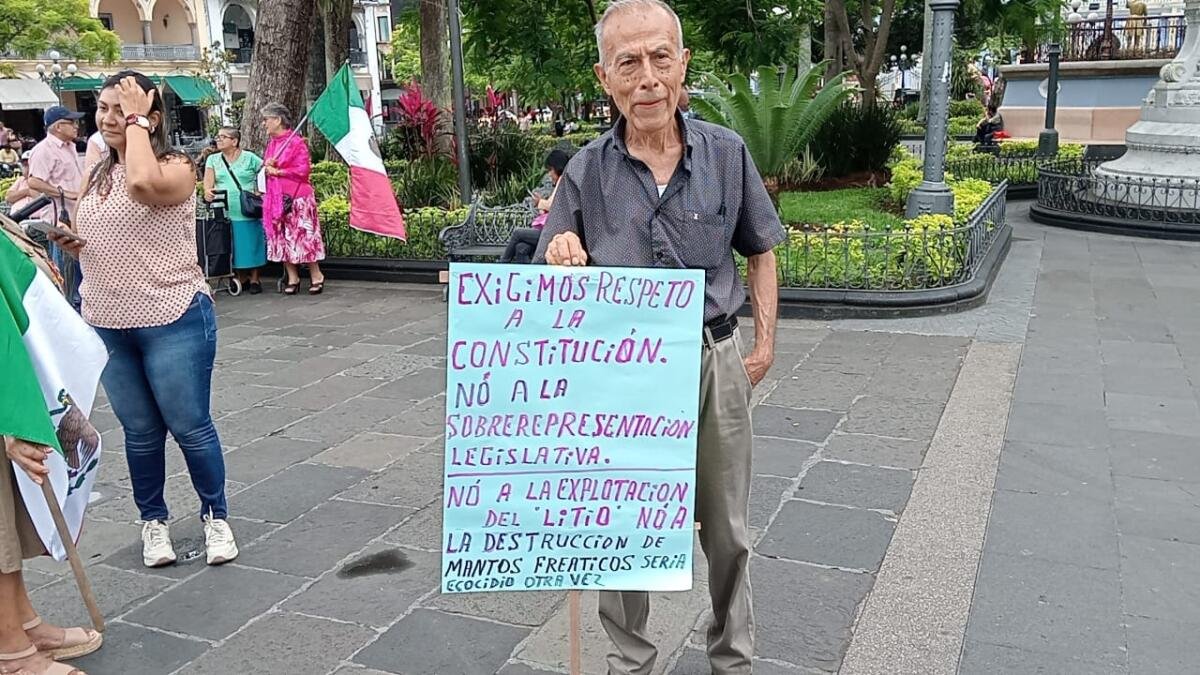 EXIGIMOS RESPETO
A LA
CONSTITUCIÓN.
NÓ A LA
SOBREREPRESENTACION
LEGISLATIVA.
NÓ A LA EXPLOTACION
DEL "LITIO" NÓ A
LA DESTRUCCION DE
MANTOS FREATICOS SERIA
ECOCIDIO OTRA VEZ